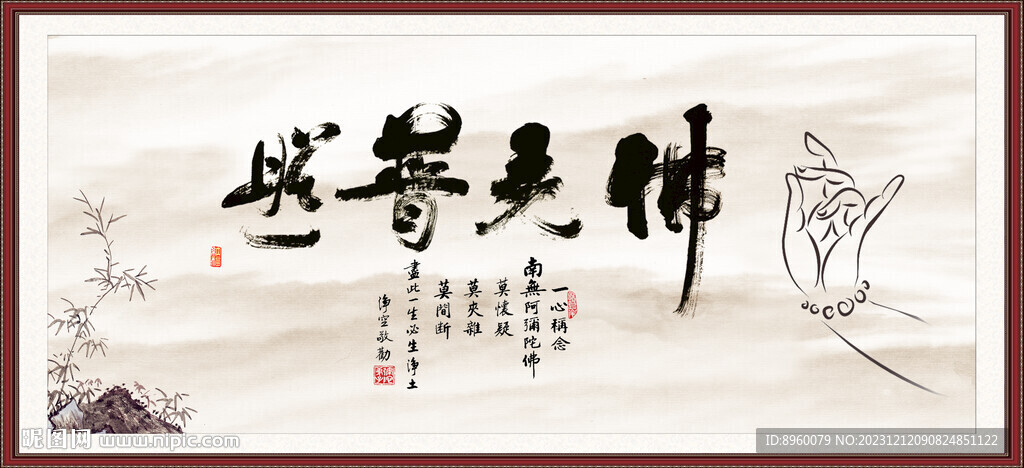 佛光普照
一心稱念
南無阿彌陀佛
莫懷疑
莫夾雜
莫間斷
盡此一生必生淨土
淨空敬勸
昵图网 www.nipic.com
ID:8960079 NO:20231212090824851122